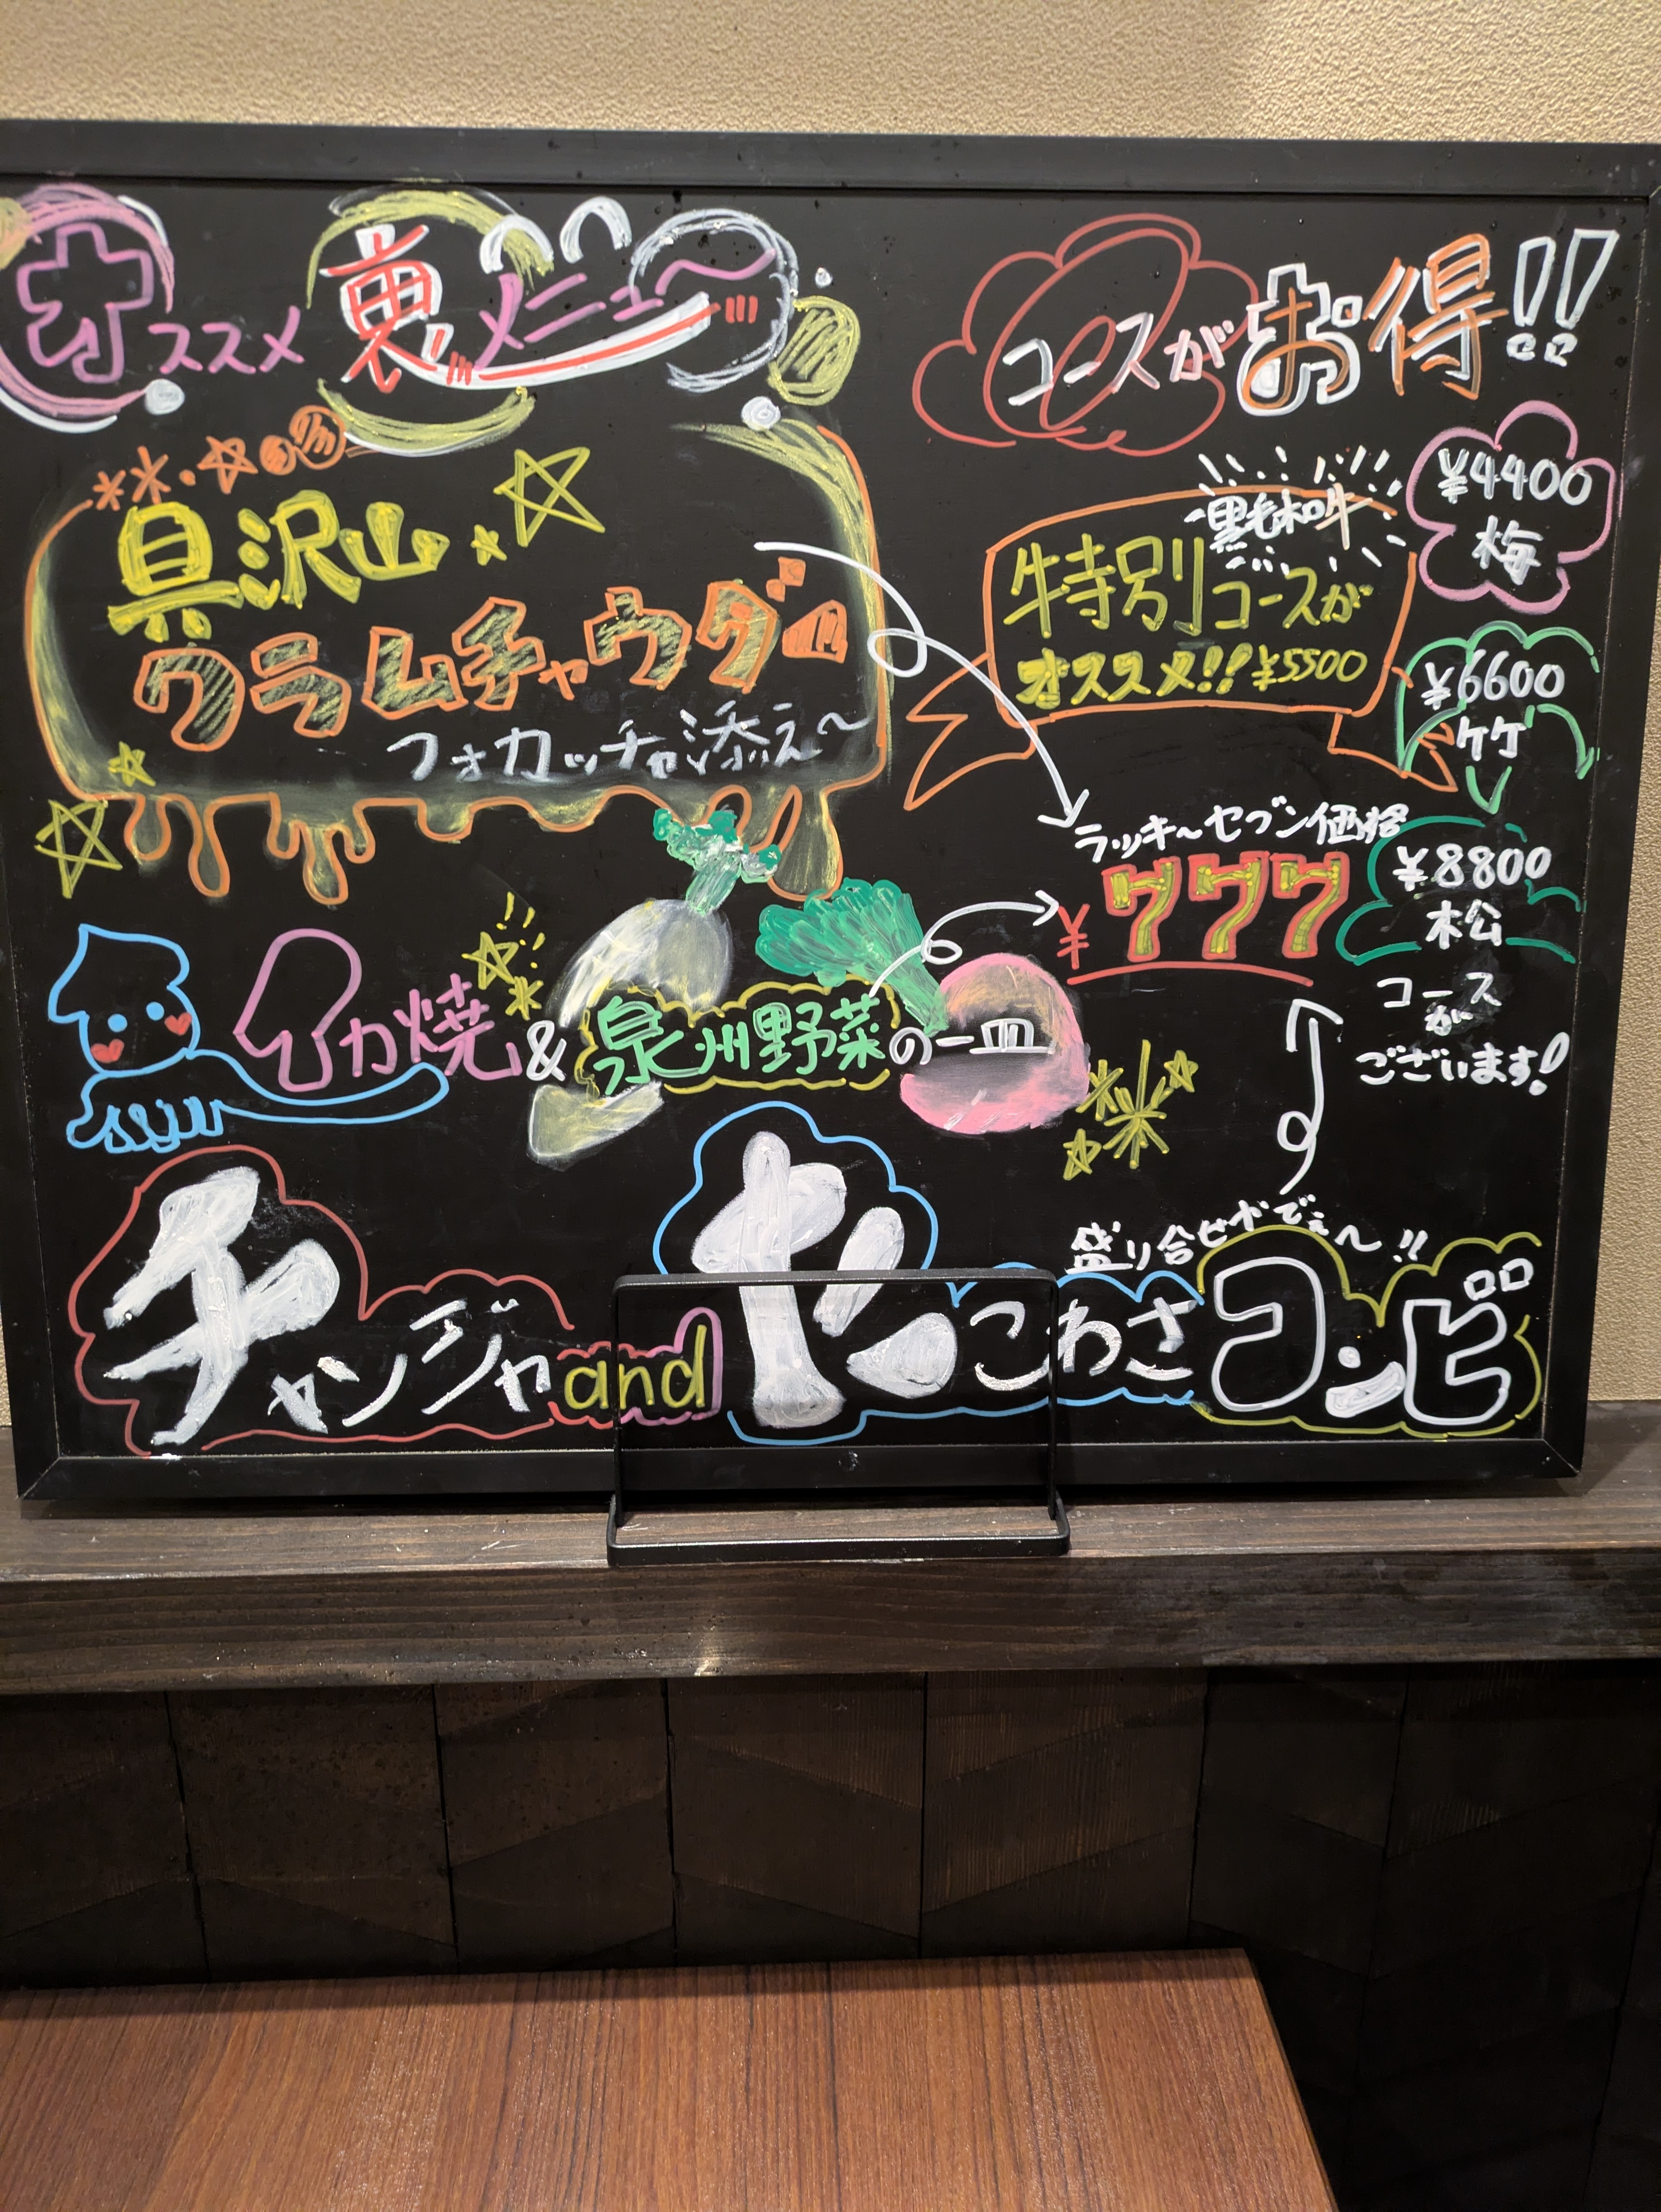 オススメ 裏メニュ〜
具沢山
クラムチャウダー
フォカッチャ添え〜
イカ焼 & 泉州野菜の一皿
チャンジャ and たこわさコンビ
盛り合せやでぇ〜!!
ラッキ〜セブン価格
¥777
コースがお得!!
黒毛和牛
牛特別コースが
オススメ!! ¥5500
¥4400
梅
¥6600
竹
¥8800
松
コース
が
ございます!